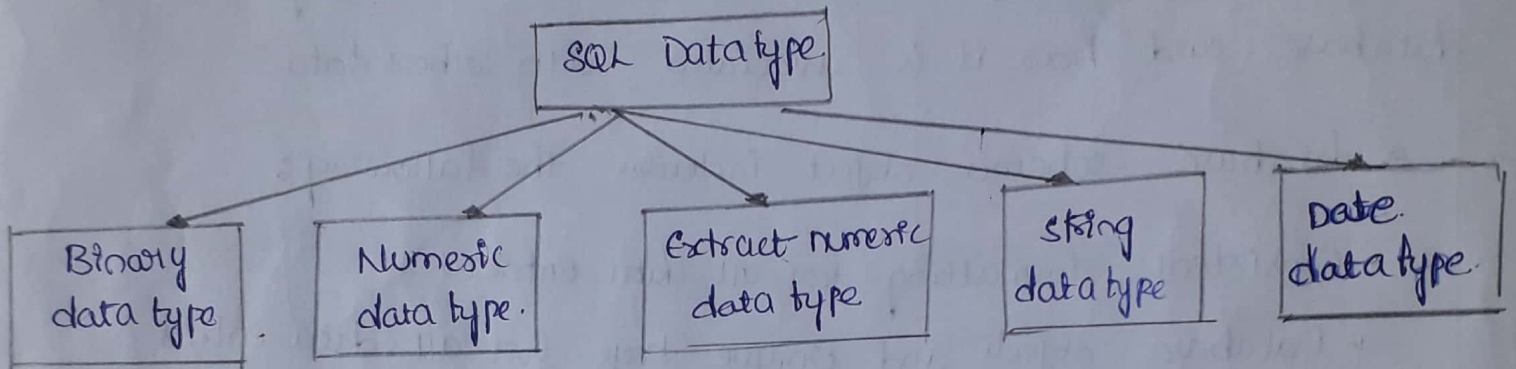 SQL Datatype
Binary
data type
Numeric
data type.
Extract numeric
data type
string
data type
Date.
data type.